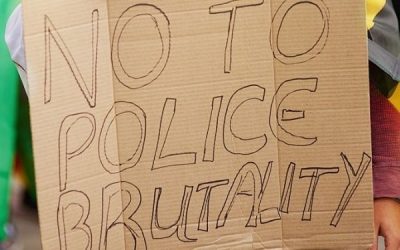 NO TO
POLICE
BRUTALITY